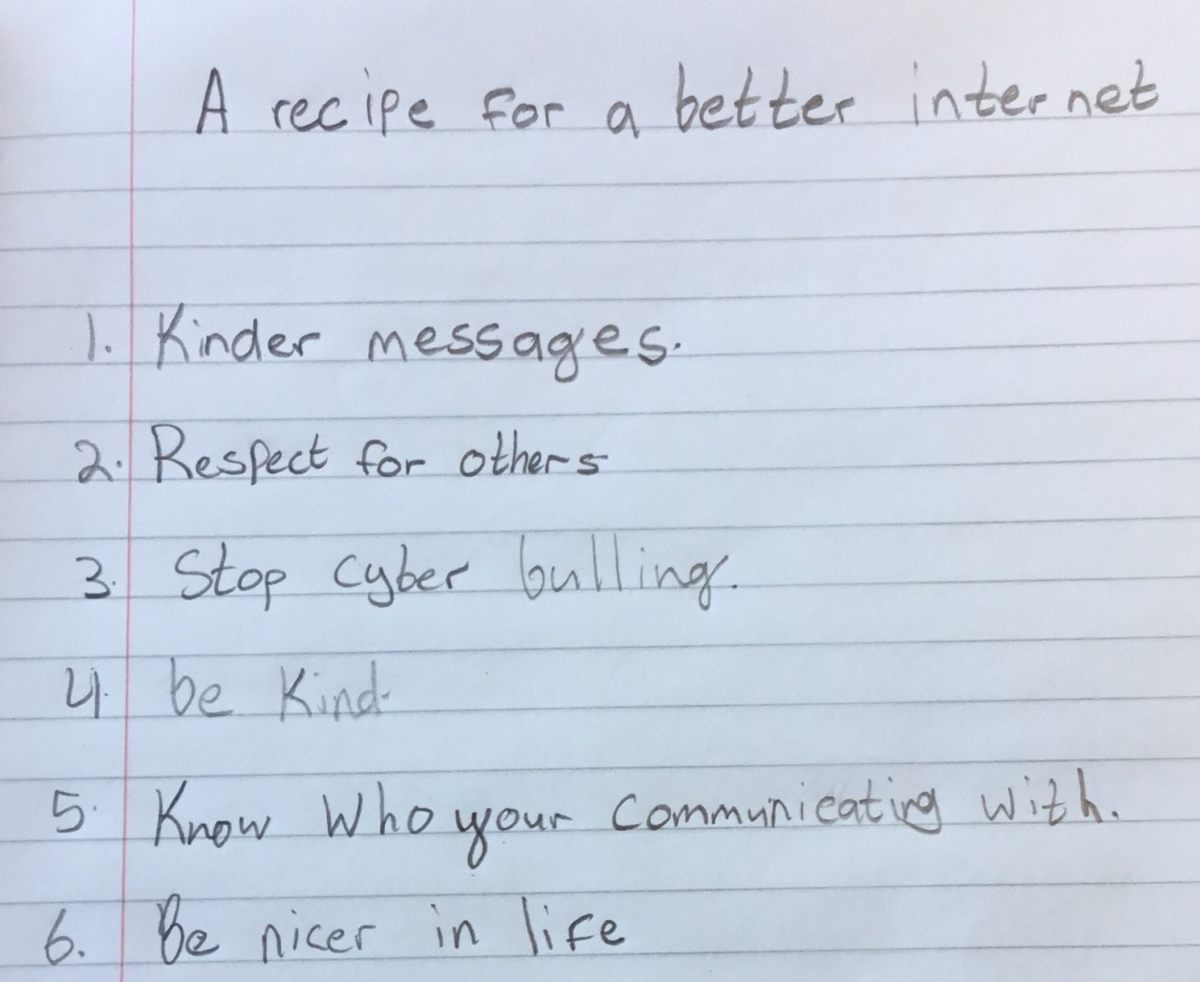 A recipe for a better internet
1. Kinder messages.
2. Respect for others
3. Stop cyber bulling.
4. be Kind.
5. Know Who your communicating with.
6. Be nicer in life